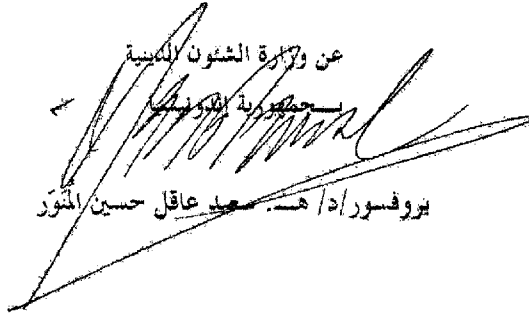 عن وزارة الشئون الدينية
بجمهورية إندونيسيا
بروفسور/د/ هـ. سعيد عاقل حسين المنوّر